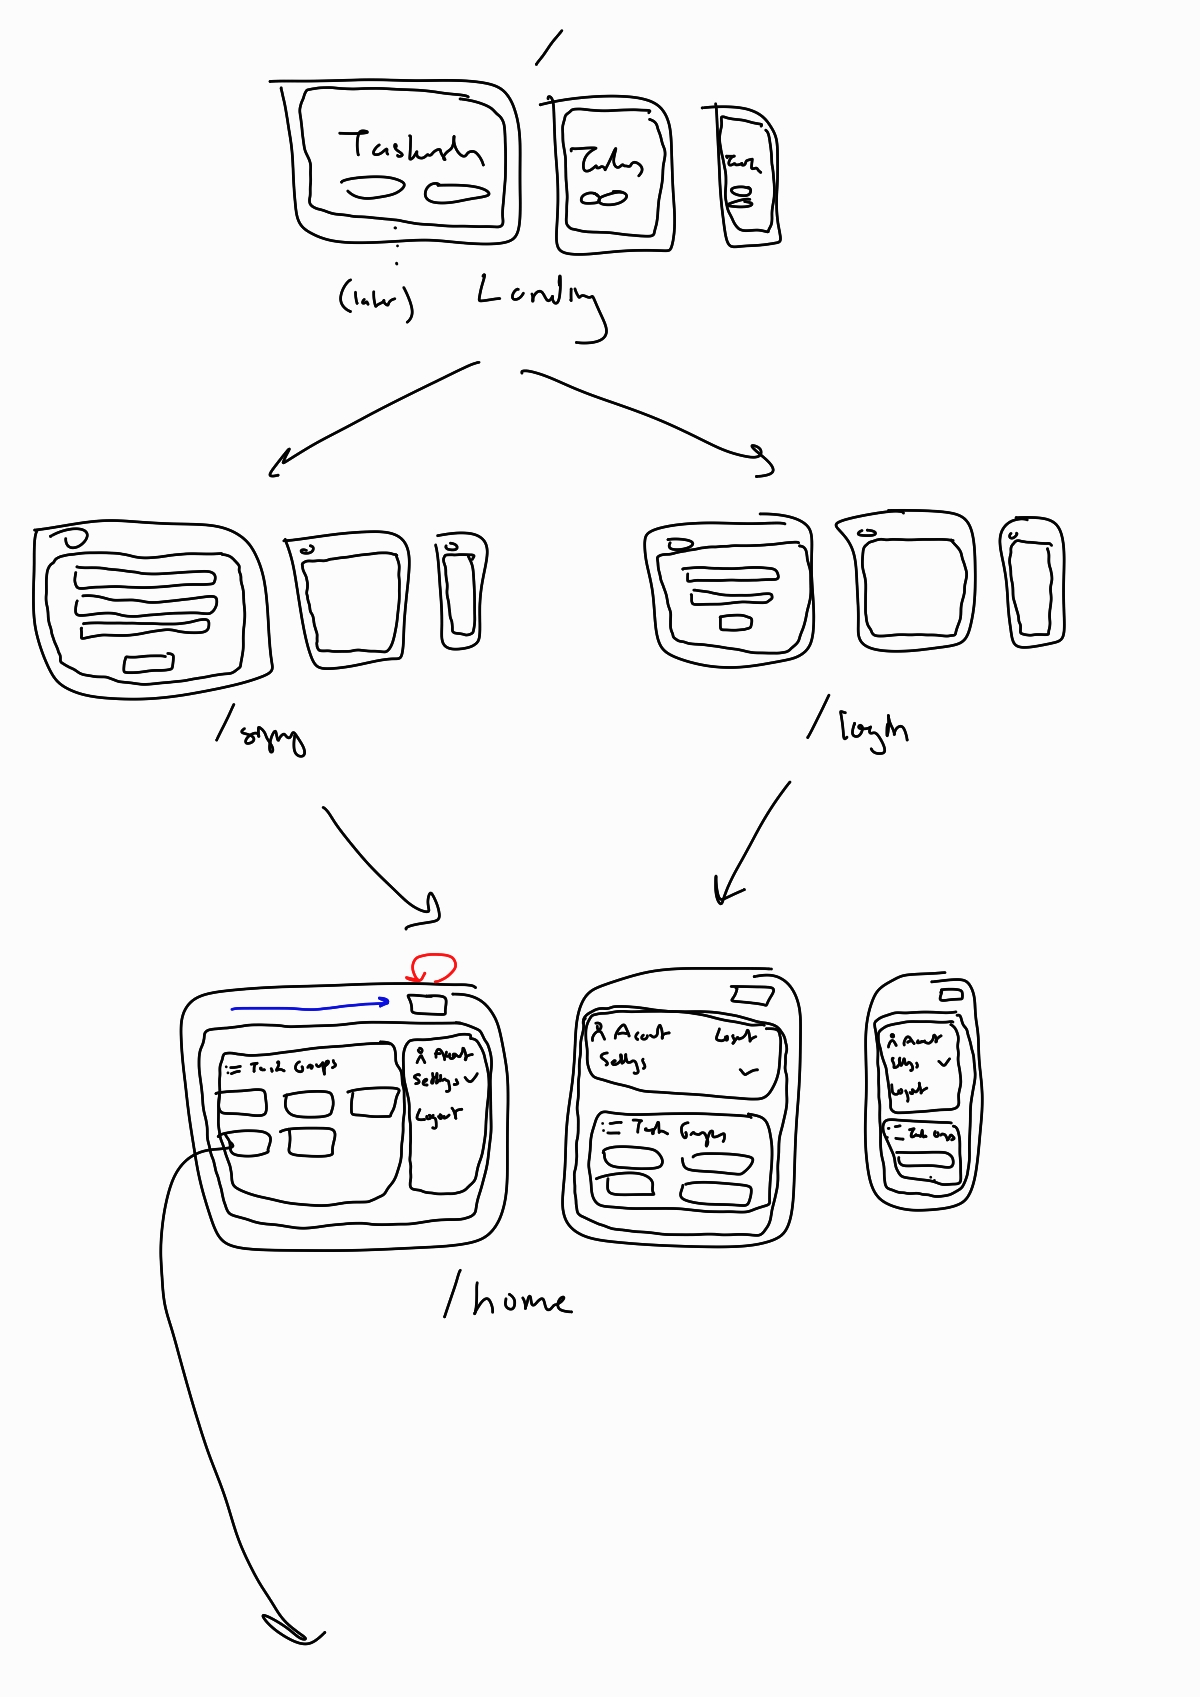 /
(later) Landing
/signup
/login
Task Groups
Account
Settings
Logout
Account Logout
Settings
Task Groups
Account
Settings
Logout
Task Groups
/home